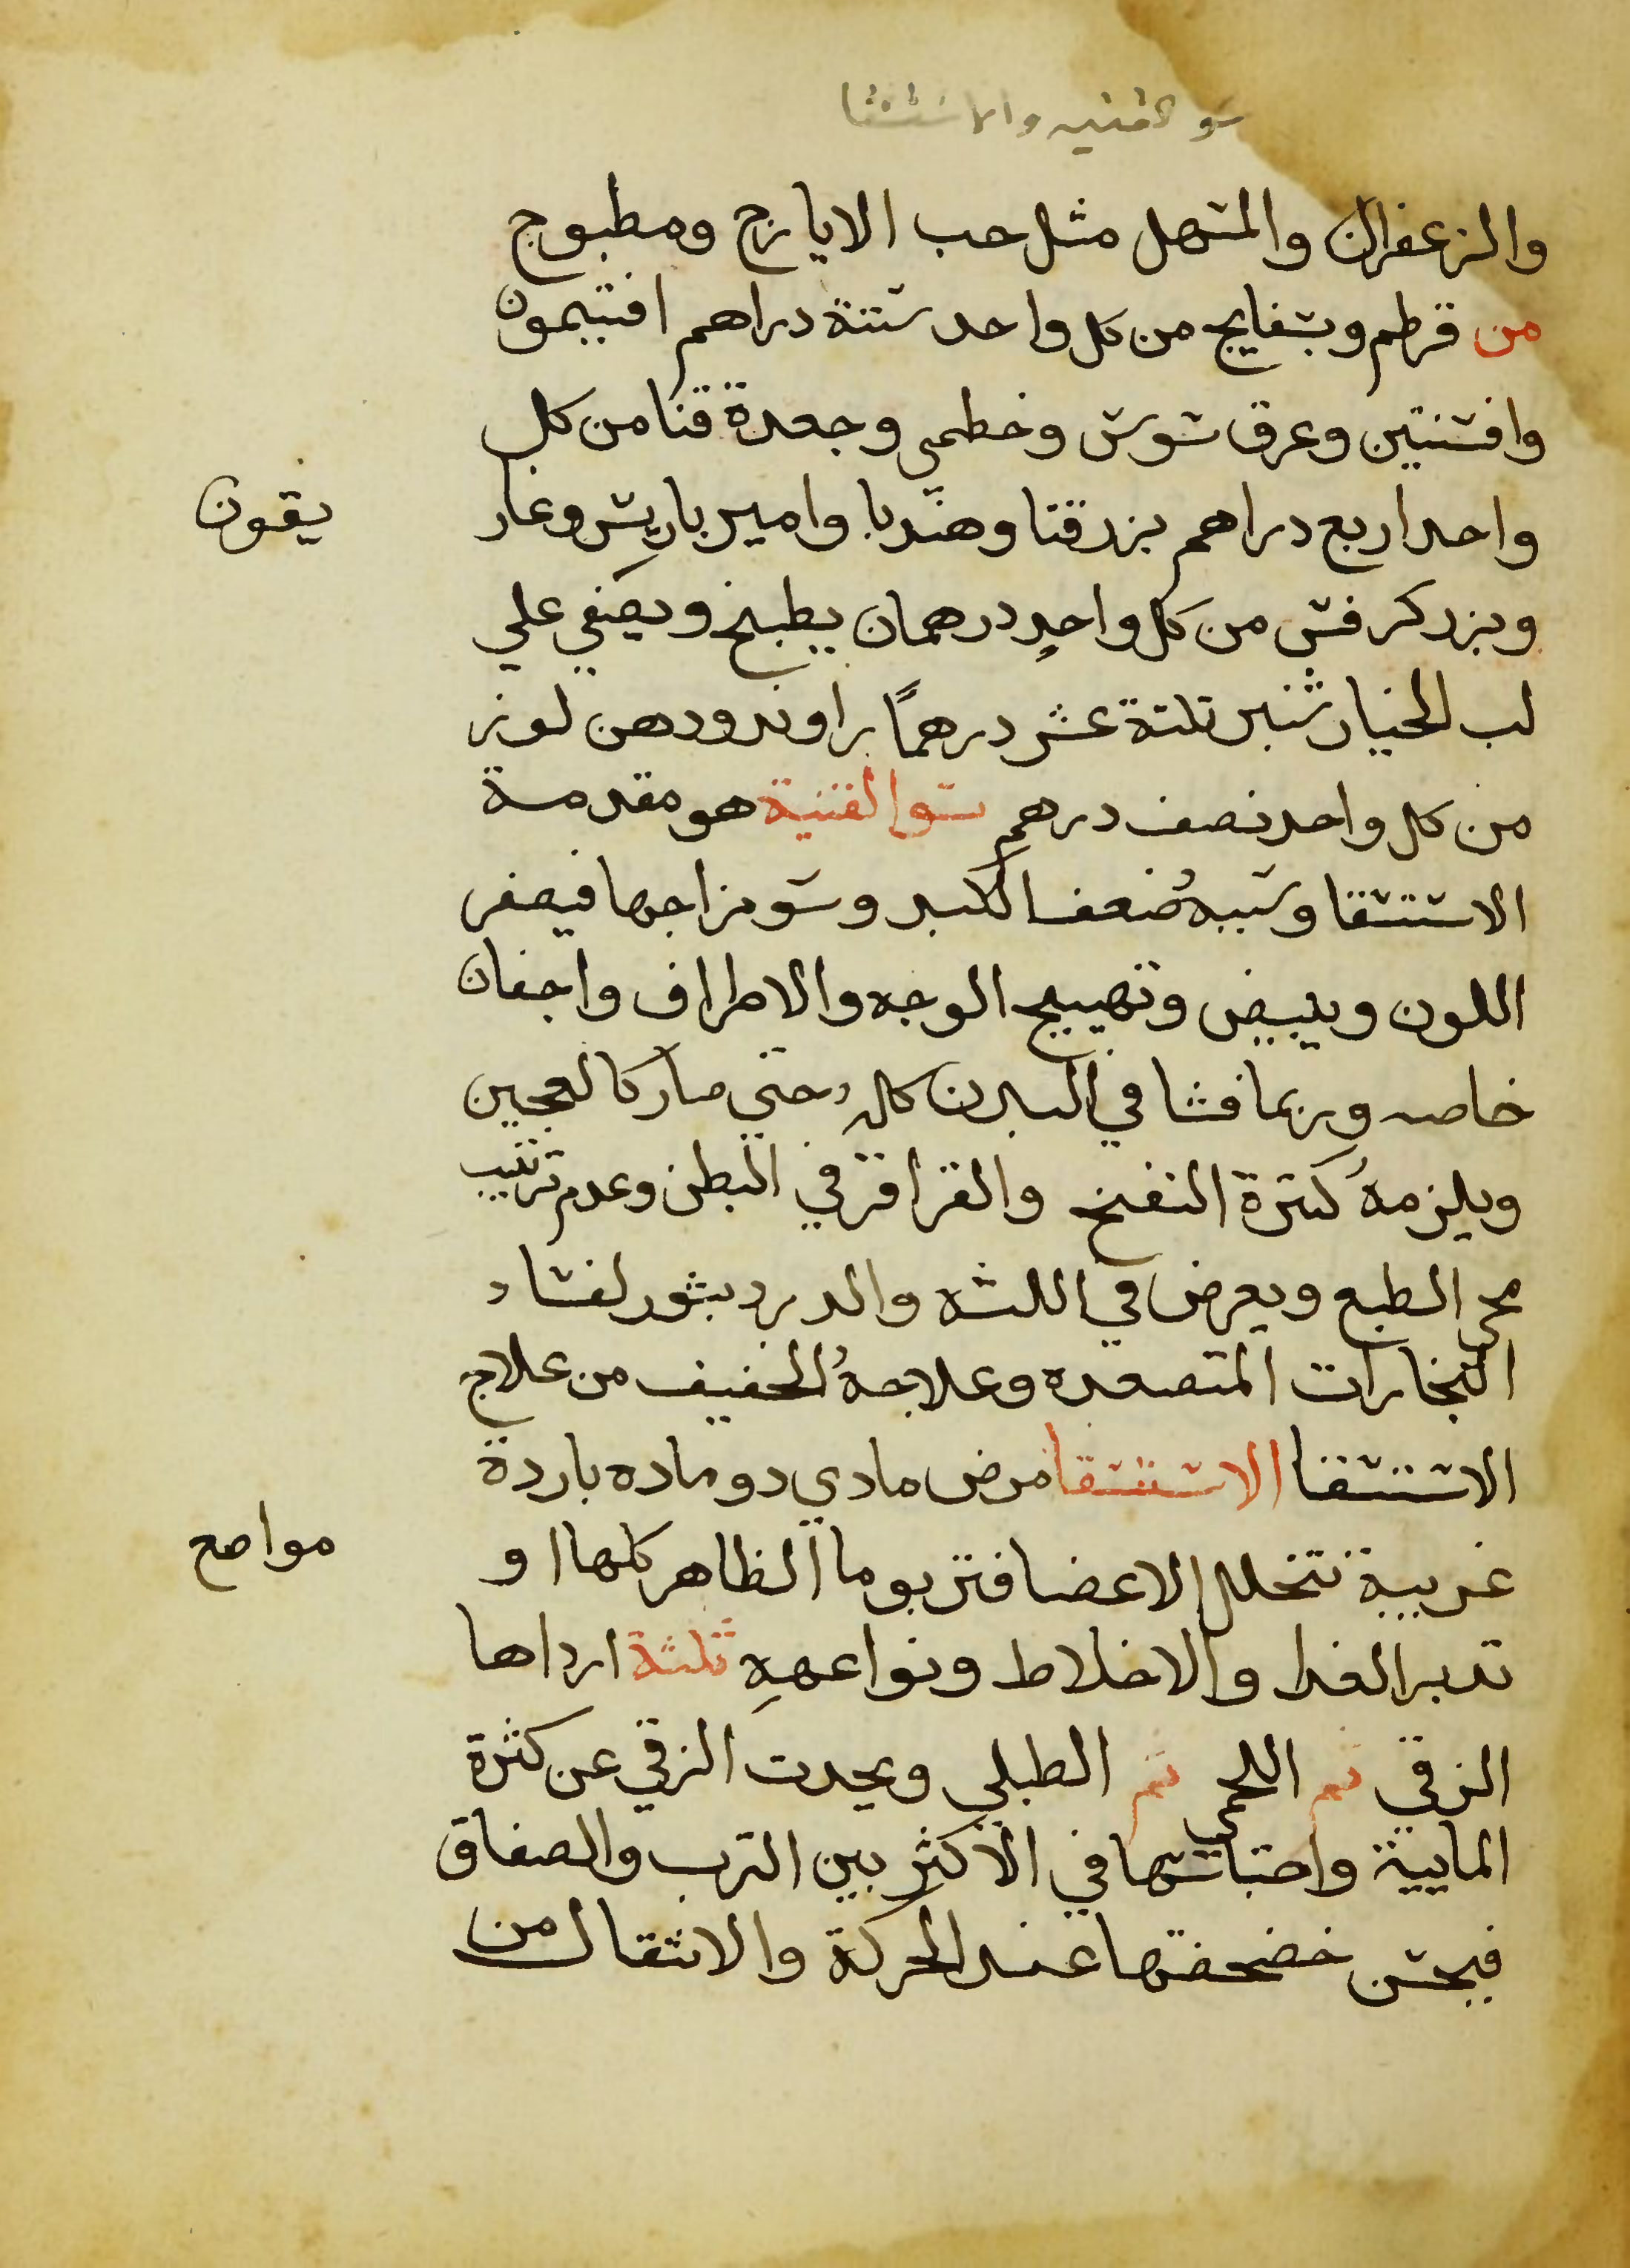 سو القنيه والاستسقا
والزعفران والمسهل مثل حب الايارج ومطبوخ
من قرطم وبسفايج من كل واحد ستة دراهم افتيمون
وافسنتين وعرق سوس وخطمي وجعدة قنا من كل
واحد اربع دراهم بزرقتا وهندبا وامير باريس وغار
يقون
وبزر كرفس من كل واحدٍ درهمان يطبخ ويصفي علي
لب الخيار شنبر تلتة عشر درهمًا راوند ودهن لوز
من كل واحد نصف درهم سو القنية هو مقدمة
الاستسقا وسببهُ ضعف الكبد وسو مزاجها فيصفر
اللون ويبيض وتهييج الوجه والاطراف واجفان
خاصه وربما فشا في البدن كلهُ حتي صار كالعجين
ويلزمهُ كثرة النفخ والقراقر في البطن وعدم ترتيب
مجي الطبع ويعرض في اللثه والدرد بثور لفساد
البخارات المتصعده وعلاجهُ الخفيف من علاج
الاستسقا الاستسقا مرض مادي دو ماده باردة
غريبة تتخلل الاعضا فتربوما الظاهر كلها او
مواضع
تدبر الغدا والاخلاط ونواعهِ ثلثة ارداها
الزقي ثم اللحمي ثم الطبلي ويحدت الزقي عن كثرة
المايية واحتباسها في الاكثر بين الترب والصفاق
فيحس خضخضتها عند الحركة والانتقال من